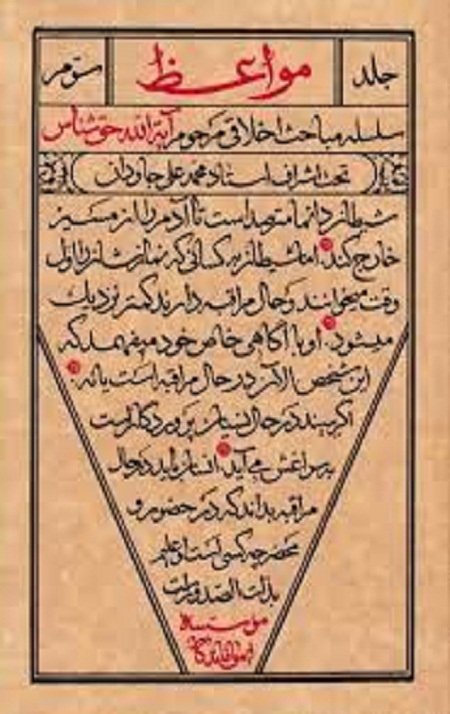 جلد مواعظ سوم
سلسله مباحث اخلاقی مرحوم آیة الله حق شناس
تحت اشراف استاد محمد علی جاودان
شیطان دائما مترصد است تا آدم را از مسیر
خارج کند. اما شیطان به کسانی که نمازشان را اول
وقت میخوانند و حال مراقبه دارند کمتر نزدیک
میشود. او با آگاهی خاص خود میفهمد که
این شخص الان در حال مراقبه است یا نه.
اگر ببیند در حال نسیان پروردگار است
به سراغش می آید. انسان باید در حال
مراقبه بداند که در حضور و
محضر چه کسی است او علیم
بذات الصدور است
موسسه